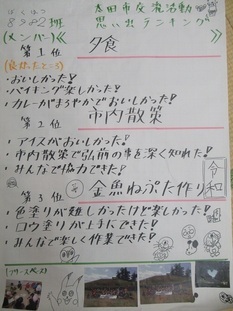 ばくはつ
8922班
太田市交流活動
思い出ランキング
(メンバー)《
第1位 夕食
(良かったところ)
・おいしかった!
・バイキング楽しかった!
・カレーがまろやかでおいしかった!
第2位 市内散策
・アイスがおいしかった!
・市内散策で弘前の事を深く知れた!
・みんなで協力できた!
令和
第3位 金魚ねぷた作り
・色塗りが難しかったけど楽しかった!
・ロウ塗りが上手だできた!
・みんなで楽しく作業できた!
(フリースペース)